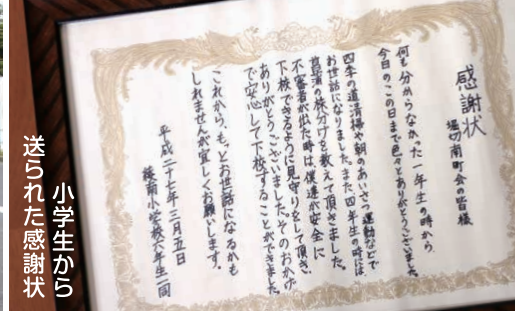 感謝状
堀切南町会の皆様
何も分からなかった一年生の時から、
今日のこの日まで色々とありがとうございました。
四季の道清掃や朝のあいさつ運動などで
お世話になりました。また四年生の時には
菖蒲の株分けを教えて頂きました。
不審者が出た時は、僕達が安全に
下校できるように見守りをして頂き、
ありがとうございました。そのおかげ
で安心して下校することができました。
これから、もっとお世話になるかも
しれませんが宜しくお願いします。
平成二十七年三月五日
綾南小学校六年生一同
小学生から
送られた感謝状